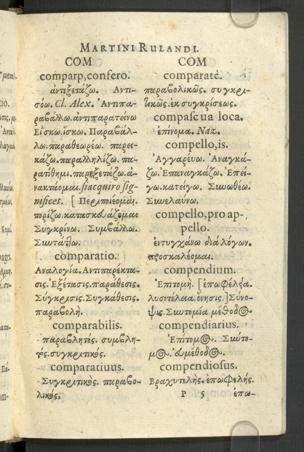 MARTINI RULANDI.
COM
comparo, confero.
ἀντεξετάζω. Ἀντι-
σόω. Cl. Alex. Ἀντιπα-
ραβάλλω. ἀντιπαρατείνω
Εἴσκω. ἴσκω. Παραβάλ-
λω. παραθεωρέω. παρει-
κάζω. παραλληλίζω. πα-
ρατίθημι. παρεξετάζω. ἀ-
νακτάομαι, si acquiro sig-
nificet. [Περιποιέομαι,
πορίζω. κατασκευάζομαι
Συγκρίνω. Συμβάλλω.
Συντάττω.
comparatio.
Ἀναλογία. Ἀντιπαρέκτα-
σις. Ἐξέτασις. παράθεσις.
Σύγκρισις. Συγκατάθεσις.
παραβολή.
comparabilis.
παραβλητός. συμβλη-
τός. συγκριτικός.
comparatiuus.
Συγκριτικός. παραβο-
λικός.
COM
comparatè.
παραβολικῶς. συγκρι-
τικῶς. ἐκ συγκρίσεως.
compascua loca.
ἐπίνομα. Naz.
compello, is.
Ἀγγαρεύω. Ἀναγκά-
ζω. Ἐπαναγκάζω. Ἐπεί-
γω. κατείγω. Συνωθέω.
Συνελαύνω.
compello, pro ap-
pello.
ἐντυγχάνω διὰ λόγων.
προσκαλέομαι.
compendium.
Ἐπιτομή. [ἐπωφέλεια.
λυσιτέλεια. ὄνησις.] Σύνο-
ψις. Συντομία μέθοδος.
compendiarius.
Ἐπίτομος. Σύντο-
μος. εὐμέθοδος.
compendiosus.
Βραχυτελής. ἐπωφελής.
P 5 ἐπω-